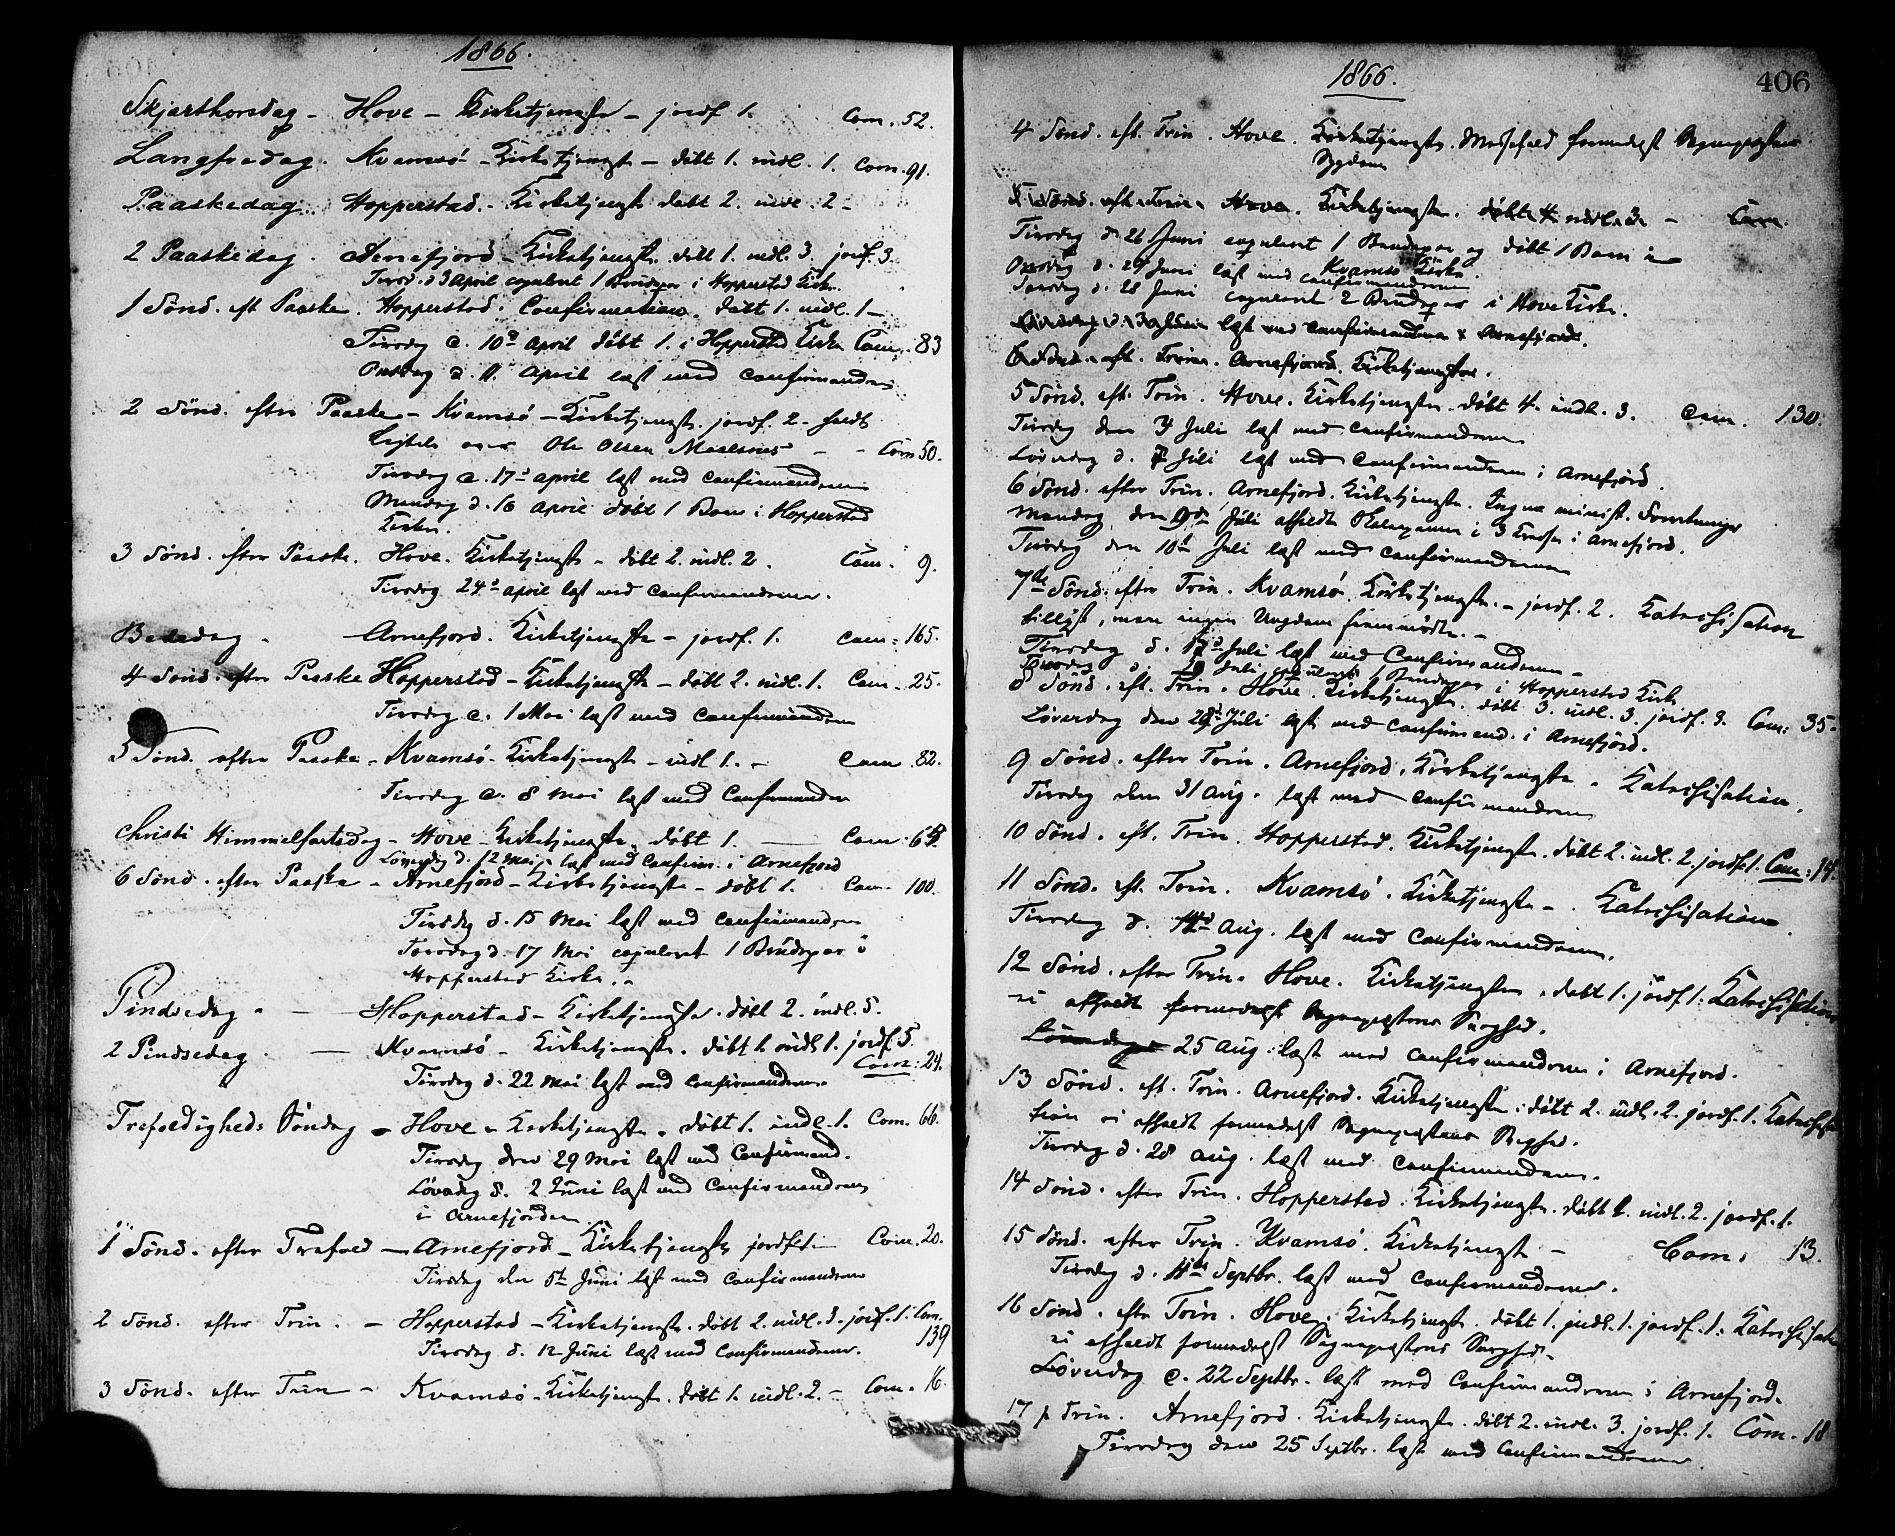 1866.
Skjærthorsdag - Hove - Kirketjeneste - jordf 1. Com. 52.
Langfredag. Kvamsö - Kirketjeneste - döbt 1. indl. 1. Com. 91.
Paaskedag Hopperstad - Kirketjeneste döbt 2. indl. 2 -
2 Paaskedag. Arnefjord - Kirketjeneste. döbt 1. indl. 3. jordf. 3.
Tirsd. d 3 April copuleret 1 Brudepar i Hopperstad Kirke.
1 Sönd. eft Paaske. Hopperstad. Confirmation. döbt 1. indl. 1 -
Tirsdag d. 10de April döbt 1. i Hopperstad Kirke Com. 83
Onsdag d. 11 April læst med Confirmanderne
2 Sönd. efter Paaske - Kvamsö - Kirketjeneste. jordf. 2 - holdt
Ligtale over Ole Olsen - - Com 50.
Tirsdag d. 17de april læst med Confirmanderne
Mandag d. 16 april döbt 1 Barn i Hopperstad
Kirke.
3 Sönd. efter Paaske. Hove. Kirketjeneste - döbt 2. indl. 2. Com. 9.
Tirsdag 24de april læst med Confirmanderne.
Bededag - Arnefjord. Kirketjeneste - jordf. 1. Com: 165.
4 Sönd. efter Paaske Hopperstad - Kirketjeneste - döbt 2. indl. 1. Com. 25.
Tirsdag d. 1 Mai læst med Confirmanderne
5 Sönd. efter Paaske - Kvamsö - Kirketjeneste - indl 1. - Com 82.
Tirsdag d. 8 Mai læst med Confirmanderne
Christi Himmelfartsdag - Hove - Kirketjeneste. döbt 1. Com.
Löverdag d. 12 Mai læst med Confirm. i Arnefjord
6 Sönd. efter Paaske - Arnefjord - Kirketjeneste - döbt 1. Com. 100.
Tirsdag d. 15 Mai læst med Confirmanderne
Torsdag d. 17 Mai copuleret 1 Brudepar i
Hopperstad Kirke. -
Pindsedag - Hopperstad - Kirketjeneste. döbt 2. indl. 5.
2 Pindsedag. - Kvamsö - Kirketjeneste. döbt 1. indl 1. jordf 5.
Com: 24.
Tirsdag d. 22 Mai læst med Confirmanderne
Trefoldigheds Söndag - Hove - Kirketjeneste - döbt 1. indl. 1. Com. 66.
Tirsdag den 29 Mai læst med Confirmand.
Löverdag d. 2 Juni læst med Confirmanderne
i Arnefjorden
1 Sönd. efter Trefold - Arnefjord - Kirketjeneste jordf 1. - Com. 20.
Tirsdag den 5te Juni læst med Confirmanderne
2 Sönd. efter Trin. - Hopperstad - Kirketjeneste. döbt 2. indl. 3. jordf. 1. Com.
139
Tirsdag d. 12 Juni læst med Confirmanderne.
3 Sönd. efter Trin - Kvamsö - Kirketjeneste. döbt 1. indl. 2. - Com. 16.
1866.
406
4 Sönd. eft. Trin. Hove. Kirketjeneste. Messefald formedelst Sognepræstens
Sygdom
5 Sönd. eft. Trin. Hove. Kirketjeneste. döbt 4. indl. 3. - Com.
Tirsdag d 26 Juni copuleret 1 Brudepar og döbt 1 Barn i
Kvamsö Kirke.
Onsdag d. 27 Juni læst med Confirmanderne
Torsdag d. 28 Juni copuleret 2 Brudepar i Hove Kirke.
Löverdag d. 30 Juni læst med Confirmanderne i Arnefjord.
6 Sönd. eft. Trin. Arnefjord. Kirketjeneste.
5 Sönd. eft. Trin. Hove. Kirketjeneste. döbt 4. indl. 3. Com. 130.
Tirsdag den 3 Juli læst med Confirmanderne
Löverdag d. 7 Juli læst med Confirmanderne i Arnefjord.
6 Sönd. efter Trin. Arnefjord. Kirketjeneste. Ingen minist. Forretninger
Mandag den 9de Juli afholdt Skoleexamen i 3 Kredse i Arnefjord.
Tirsdag den 10de Juli læst med Confirmanderne
7de Sönd. efter Trin. Kvamsö. Kirketjeneste. - jordf. 2. Katechisation
tillyst, men ingen Ungdom fremmödte. -
Tirsdag d. 17de Juli læst med Confirmanderne -
Juli copuleret 1 Brudepar i Hopperstad Kirke
8 Sönd. eft. Trin. Hove. Kirketjeneste. döbt 3. indl. 3. jordf. 3. Com: 35.
Löverdag den 28de Juli læst med Confirmand. i Arnefjord.
9 Sönd. efter Trin. Arnefjord. Kirketjeneste. Katechisation.
Tirsdag den 31 Aug. læst med Confirmanderne
10 Sönd. eft. Trin. Hopperstad. Kirketjeneste. döbt 2. indl. 2. jordf. 1. Com: 14.
11 Sönd. eft. Trin. Kvamsö. Kirketjeneste - . Katechisation.
Tirsdag d. 14de Aug. læst med Confirmanderne.
12 Sönd. efter Trin. Hove. Kirketjeneste. döbt 1. jordf 1. Katechisation
ei afholdt formedelst Sognepræstens Svaghed.
Löverdag 25 Aug. læst med Confirmanderne i Arnefjord.
13 Sönd. eft. Trin. Arnefjord. Kirketjeneste. döbt 2. indl. 2. jordf. 1. Katechisa
tion ei afholdt formedelst Sognepræstens Svaghed.
Tirsdag d. 28 Aug. læst med Confirmanderne.
14 Sönd. efter Trin. Hopperstad. Kirketjeneste. döbt 1. indl. 2. jordf. 1.
15 Sönd. efter Trin. Kvamsö. Kirketjeneste - Com: 13.
Tirsdag d. 11te Septbr. læst med Confirmanderne.
16 Sönd. efter Trin. Hove. Kirketjeneste. döbt 1. indl. 1. jordf. 1. Katechisation
ei afholdt formedelst Sognepræstens Svaghed -
Löverdag d. 22 Septbr. læst med Confirmanderne i Arnefjord.
17 p Trin. Arnefjord. Kirketjeneste. döbt 2. indl. 3. jordf. 1. Com. 18
Tirsdag den 25 Septbr. læst med Confirmanderne